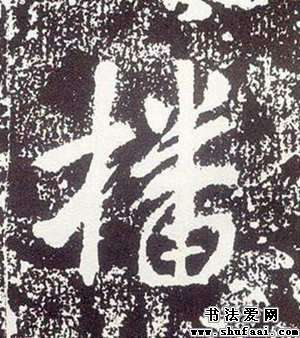 播
书法爱网
www.shufaai.com